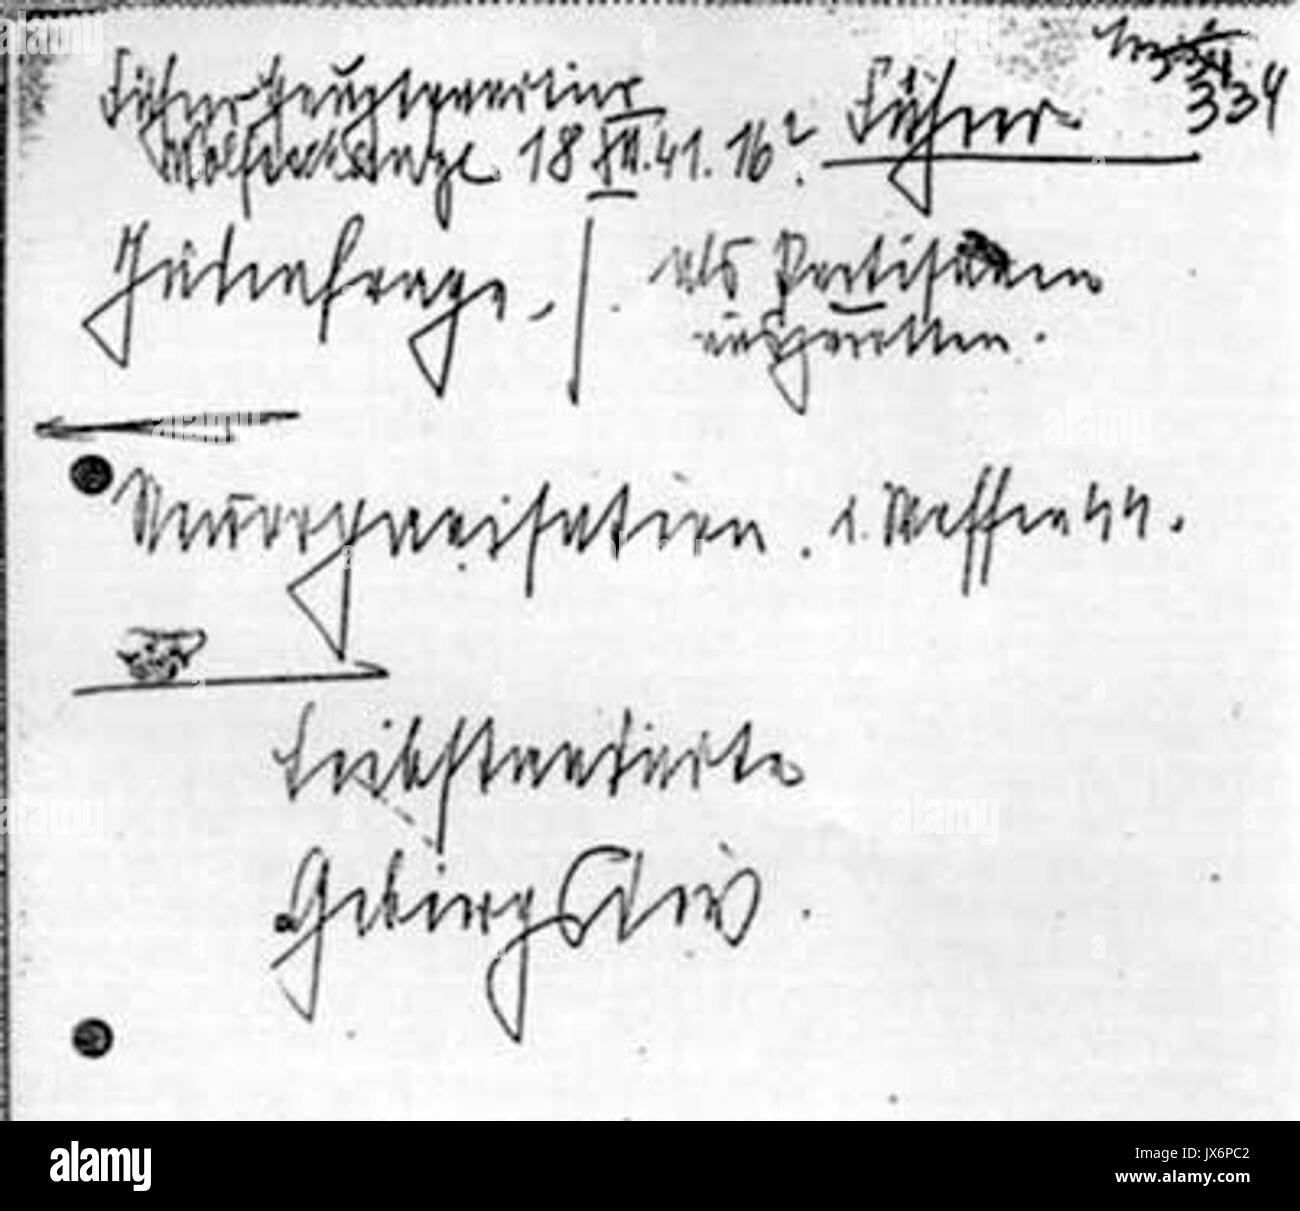 334
Führerhauptquartier
Wolfschanze 18 XII. 41. 16h. Führer
Judenfrage. | als Partisanen
auszurotten.
Neuorganisation. d. Waffen SS.
Leibstandarte
Gebirgsdiv.
alamy
Image ID: JX6PC2
www.alamy.com